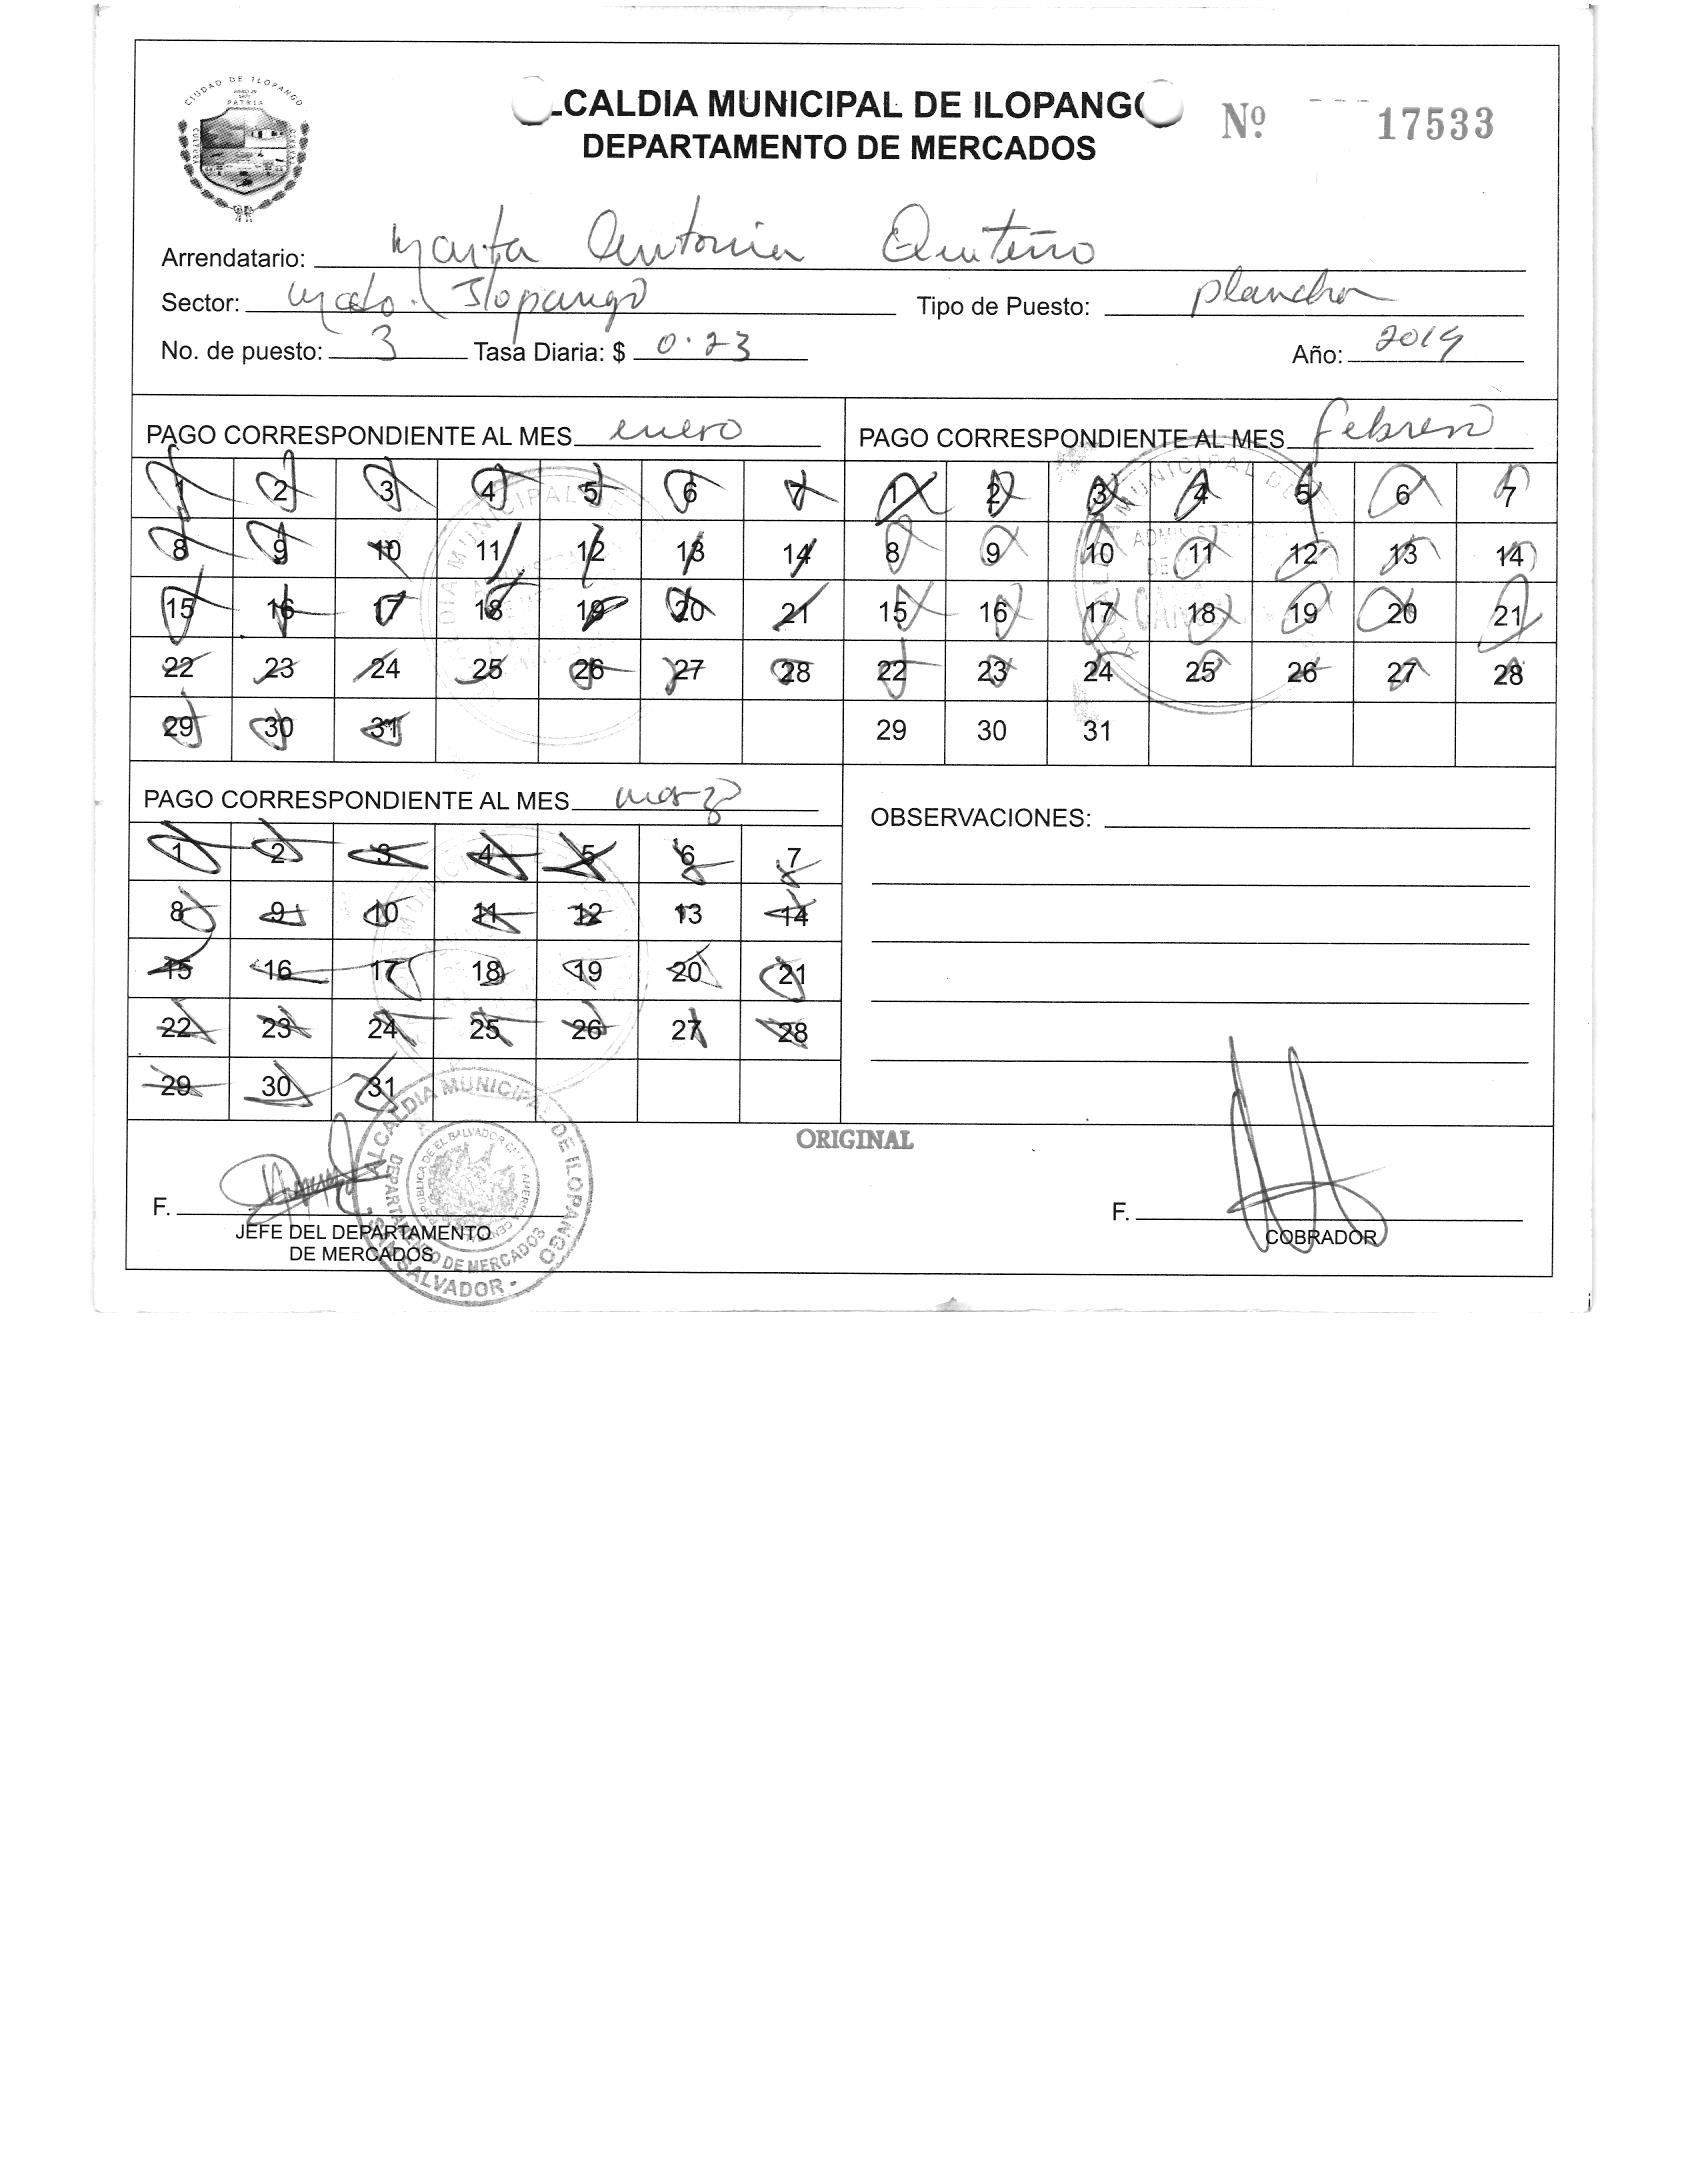 CIUDAD DE ILOPANGO
PATRIA
CULTURA
LCALDIA MUNICIPAL DE ILOPANGO
DEPARTAMENTO DE MERCADOS
Nº 17533
Arrendatario: Marta Antonia Quiteño
Sector: Mcdo. Ilopango Tipo de Puesto: plancha
No. de puesto: 3 Tasa Diaria: $ 0.23 Año: 2019
PAGO CORRESPONDIENTE AL MES enero
1 2 3 4 5 6 7
8 9 10 11 12 13 14
15 16 17 18 19 20 21
22 23 24 25 26 27 28
29 30 31
PAGO CORRESPONDIENTE AL MES febrero
1 2 3 4 5 6 7
8 9 10 11 12 13 14
15 16 17 18 19 20 21
22 23 24 25 26 27 28
29 30 31
PAGO CORRESPONDIENTE AL MES marzo
1 2 3 4 5 6 7
8 9 10 11 12 13 14
15 16 17 18 19 20 21
22 23 24 25 26 27 28
29 30 31
OBSERVACIONES:
ORIGINAL
F.
JEFE DEL DEPARTAMENTO
DE MERCADOS
ALCALDIA MUNICIPAL DE ILOPANGO
DEPARTAMENTO DE MERCADOS
SAN SALVADOR
F.
COBRADOR